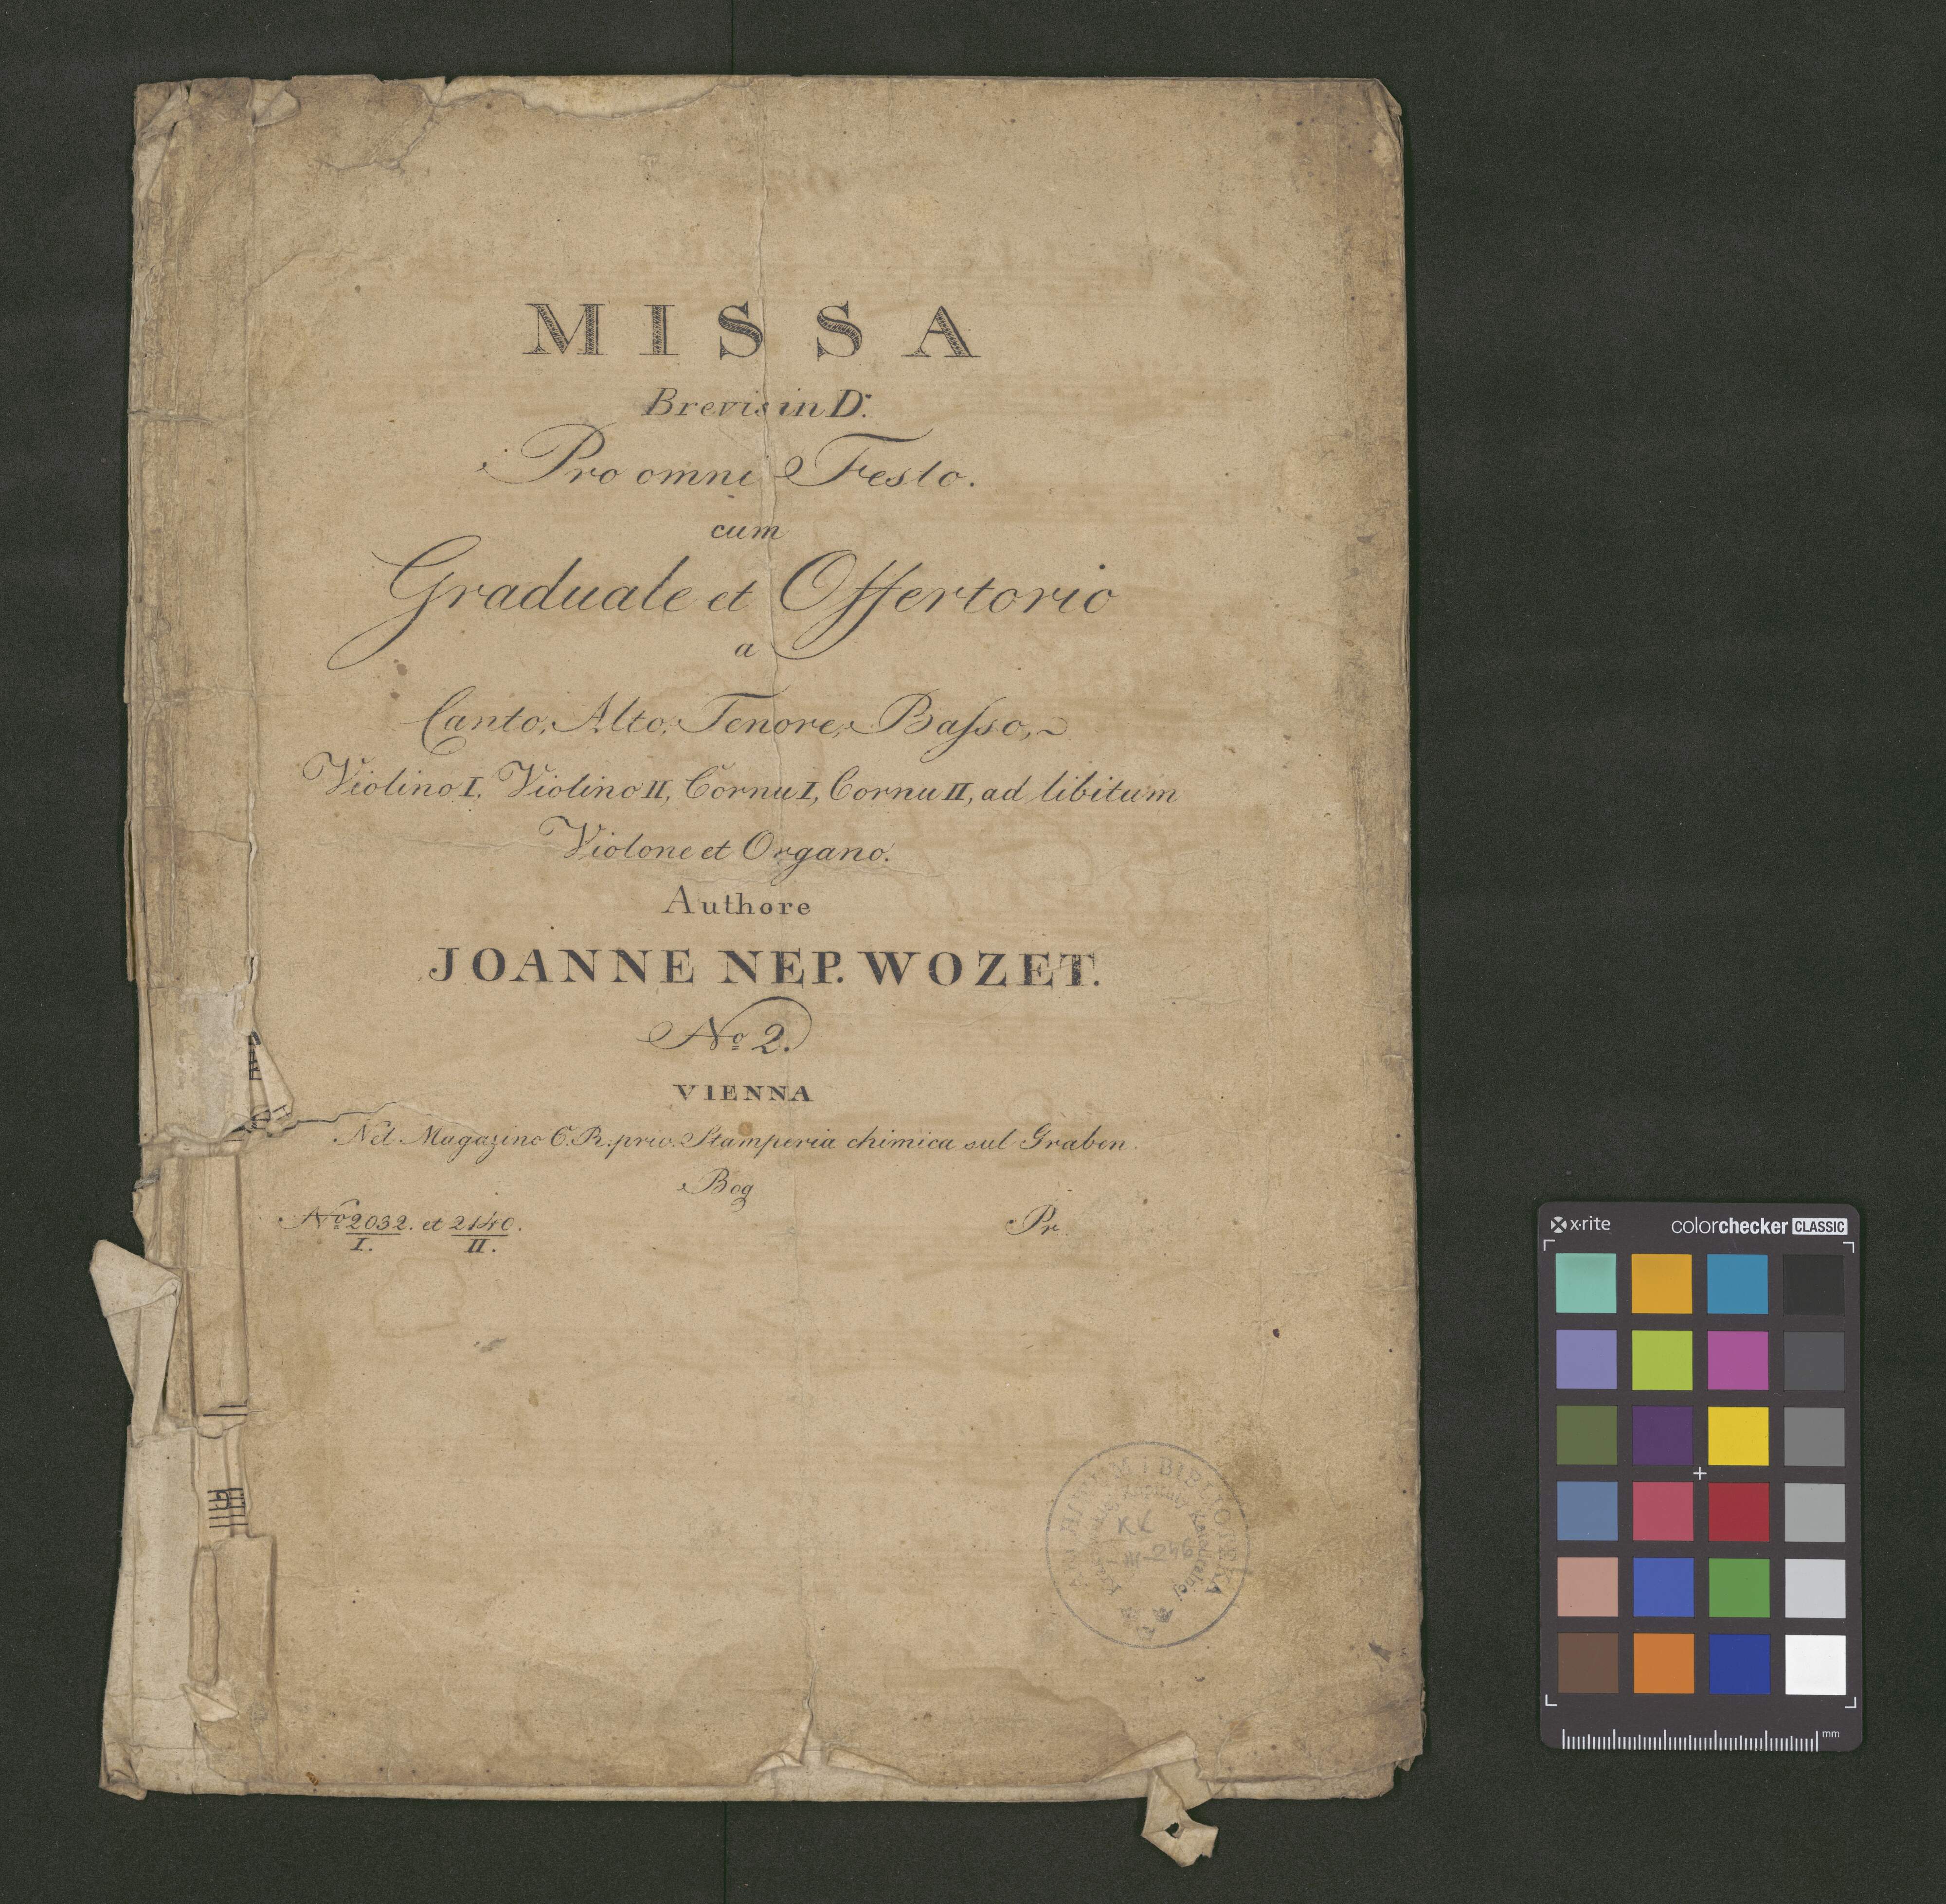 MISSA
Brevis in D.
Pro omni Festo.
cum
Graduale et Offertorio
a
Canto, Alto, Tenore, Basso,
Violino I, Violino II, Cornu I, Cornu II, ad libitum
Violone et Organo.
Authore
JOANNE NEP. WOZET.
No 2.
VIENNA
Nel Magazino C. R. priv. Stamperia chimica sul Graben
Bog
No 2032. et 2140.
I. II.
Pr.
I BIBLIOTEKA
Katedralnej
KK
III-256
x·rite colorchecker CLASSIC
mm